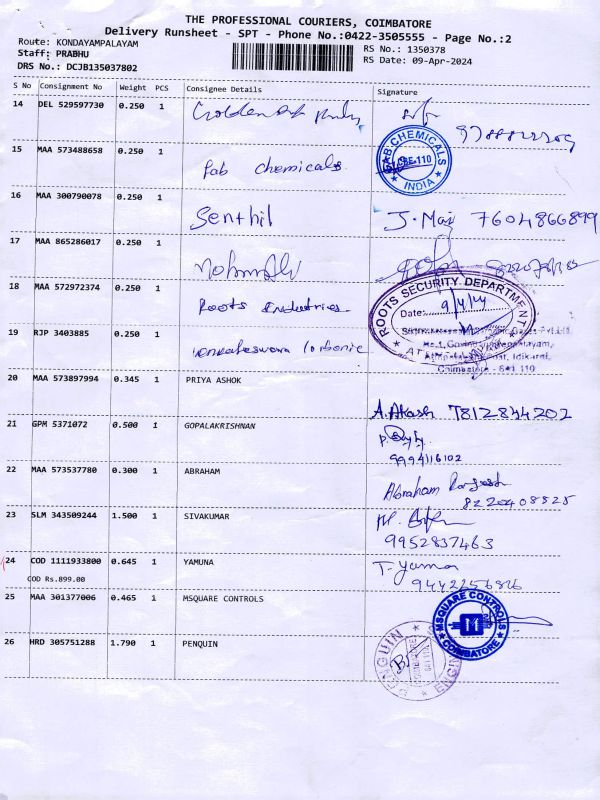 THE PROFESSIONAL COURIERS, COIMBATORE
Delivery Runsheet - SPT - Phone No.:0422-3505555 - Page No.:2
Route: KONDAYAMPALAYAM RS No.: 1350378
Staff: PRABHU RS Date: 09-Apr-2024
DRS No.: DCJB135037802
S No Consignment No Weight PCS Consignee Details Signature
14 DEL 529597730 0.250 1
15 MAA 573488658 0.250 1 Fab Chemicals
CHEMICALS
INDIA
16 MAA 300790078 0.250 1 Senthil J. 7604866899
17 MAA 865286017 0.250 1
18 MAA 572972374 0.250 1 Roots Industries
ROOTS SECURITY DEPARTMENT
Date: 9/4/24
19 RJP 3403885 0.250 1 Venkateswara Carbonic
Coimbatore - 641 110
20 MAA 573897994 0.345 1 PRIYA ASHOK
A. Akash 7812844202
21 GPM 5371072 0.500 1 GOPALAKRISHNAN
9994116102
22 MAA 573537780 0.300 1 ABRAHAM
Abraham
8220408525
23 SLM 343509244 1.500 1 SIVAKUMAR
9952837463
24 COD 1111933800 0.645 1 YAMUNA T. Yamuna
COD Rs.899.00
25 MAA 301377006 0.465 1 MSQUARE CONTROLS
MSQUARE CONTROLS
COIMBATORE
26 HRD 305751288 1.790 1 PENQUIN